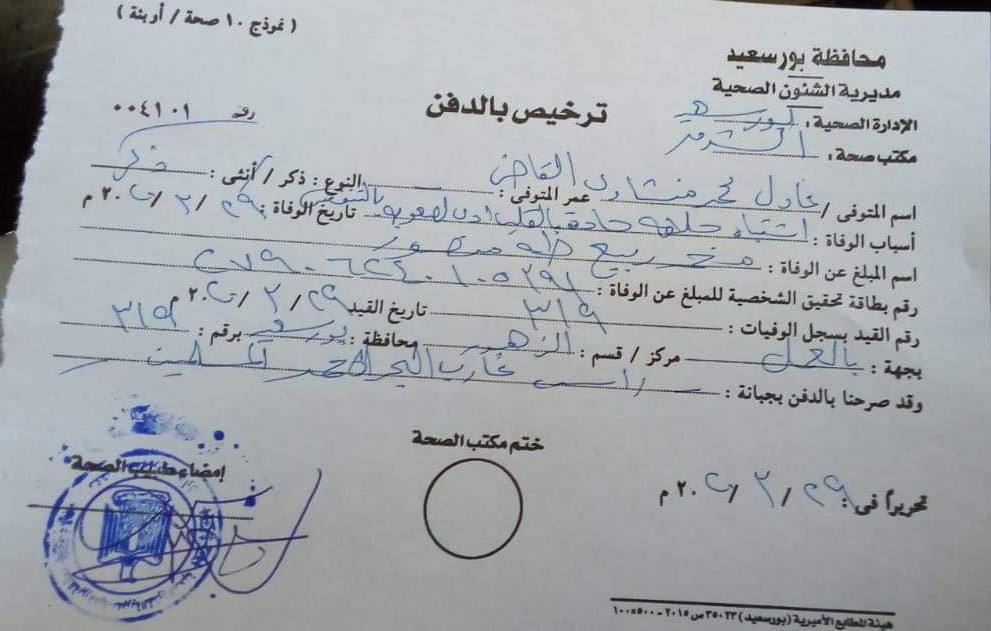 ( نموذج ١٠ صحة / أوبئة )
محافظة بورسعيد
مديرية الشئون الصحية
الإدارة الصحية : بورسعيد
مكتب صحة :
ترخيص بالدفن
رقم ٠٠٤١٠١
اسم المتوفى / عادل محمد القاضى عمر المتوفى : النوع : ذكر / أنثى : ذكر
أسباب الوفاة : اشتباه جلطة حادة بالقلب أدى لهبوط تاريخ الوفاة : ٢٩ / ٣ / ٢٠٢ م
اسم المبلغ عن الوفاة : ربيع طه منصور
رقم بطاقة تحقيق الشخصية للمبلغ عن الوفاة :
رقم القيد بسجل الوفيات : ٣١٩ تاريخ القيد ٢٩ / ٣ / ٢٠٢ م
بجهة : بالعمل مركز / قسم : الزهور محافظة : بورسعيد برقم : ٣١٩
وقد صرحنا بالدفن بجبانة : راس غارب البحر الأحمر المسلمين
تحريراً في : ٢٩ / ٣ / ٢٠٢ م
ختم مكتب الصحة
إمضاء طبيب الصحة
هيئة المطابع الأميرية (بورسعيد) ٣٥٠٢٣ س ٢٠١٥ - ٥٠٠×١٠٠